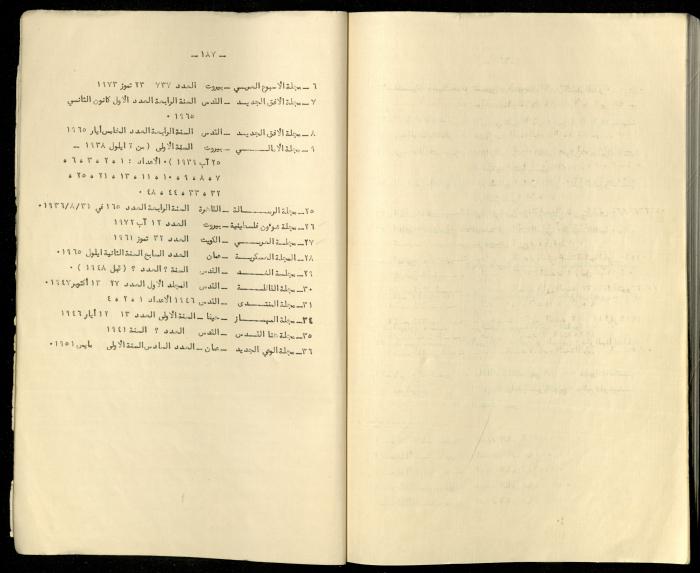 — ١٨٧ —
٦ — مجلة الاسبوع العربي — بيروت العدد ٧٣٧ ٢٣ تموز ١٩٧٣
٧ — مجلة الافق الجديد — القدس السنة الرابعة العدد الاول كانون الثاني
١٩٦٥ ٠
٨ — مجلة الافق الجديد — القدس السنة الرابعة العدد الخامس أيار ١٩٦٥
٩ — مجلة الامالي — بيروت السنة الأولى ( من ٢ ايلول ١٩٣٨ —
٢٥ آب ١٩٣٩ ) ٠ الاعداد : ١ ، ٢ ، ٣ ، ٦ ،
٧ ، ٨ ، ٩ ، ١٠ ، ١١ ، ١٣ ، ٢١ ، ٢٥ ،
٣٢ ، ٣٣ ، ٤٤ ، ٤٨ ٠
٢٥ — مجلة الرسالة — القاهرة السنة الرابعة العدد ١٦٥ في ١٩٣٦/٨/٣١ ٠
٢٦ — مجلة شؤون فلسطينية — بيروت العدد ١٢ آب ١٩٧٢
٢٧ — مجلة العربي — الكويت العدد ٣٢ تموز ١٩٦١
٢٨ — المجلة العسكرية — عمان العدد السابع السنة الثانية ايلول ١٩٦٥ ٠
٢٩ — مجلة الغد — القدس السنة ؟ العدد ؟ ( قبل ١٩٤٨ ) ٠
٣٠ — مجلة القافلة — القدس المجلد الأول العدد ٢٧ ١٣ أكتوبر ١٩٤٧ ٠
٣١ — مجلة المنتدى — القدس ١٩٤٦ الاعداد ١ ، ٢ ، ٤
٣٤ — مجلة المهماز — حيفا — السنة الأولى العدد ١٣ ١٢ أيار ١٩٤٦
٣٥ — مجلة هنا القدس — القدس العدد ؟ السنة ١٩٤١
٣٦ — مجلة الوعي الجديد — عمان — العدد السادس السنة الأولى مايس ١٩٥١ ٠